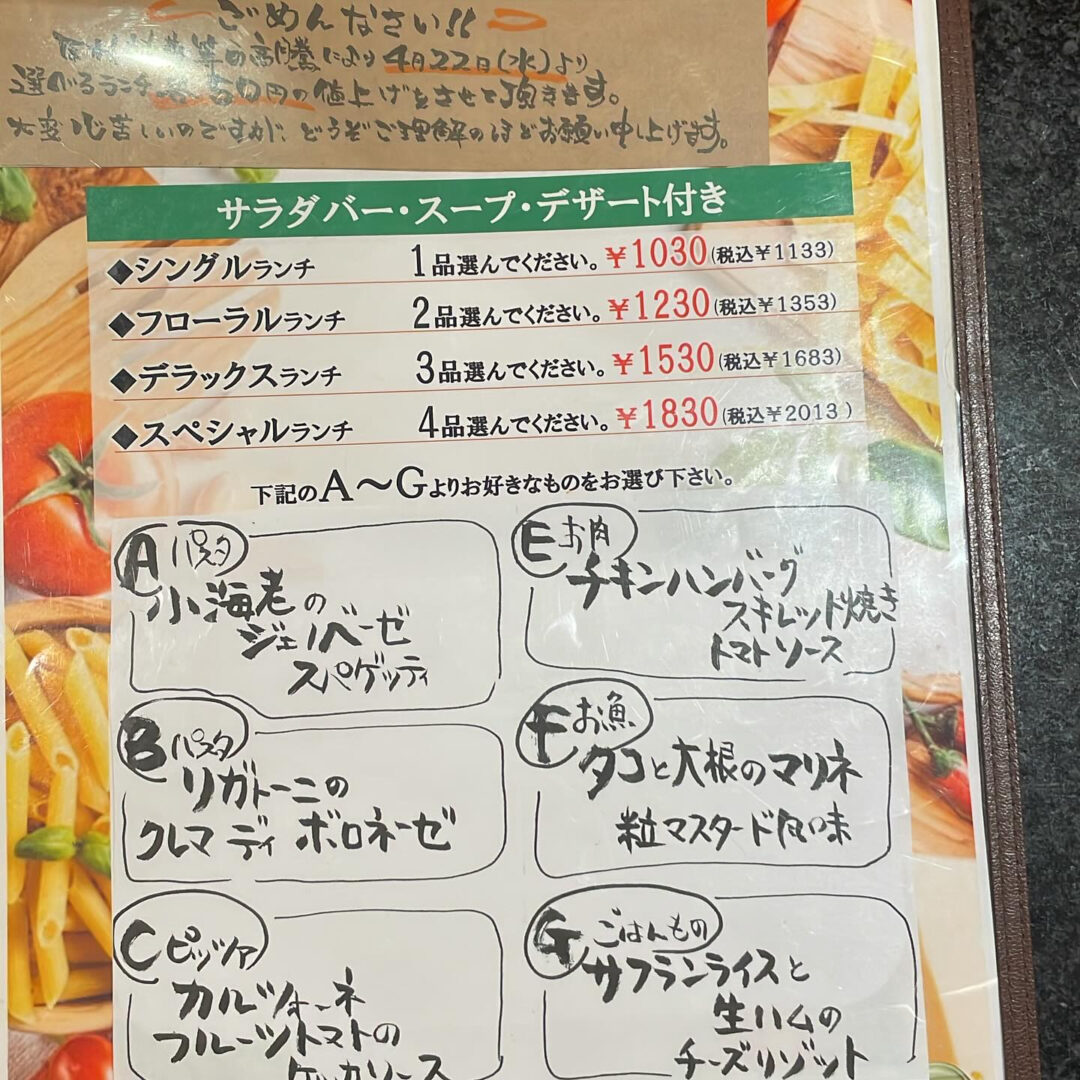 ごめんなさい!!
等の高騰により4月22日(水)より
選べるランチ 50円の値上げをさせて頂きます。
大変心苦しいのですが、どうぞご理解のほどお願い申し上げます。
サラダバー・スープ・デザート付き
◆シングルランチ 1品選んでください。¥1030(税込¥1133)
◆フローラルランチ 2品選んでください。¥1230(税込¥1353)
◆デラックスランチ 3品選んでください。¥1530(税込¥1683)
◆スペシャルランチ 4品選んでください。¥1830(税込¥2013)
下記のA〜Gよりお好きなものをお選び下さい。
A パスタ
小海老の
ジェノベーゼ
スパゲッティ
B パスタ
リガトーニの
クレマ ディ ボロネーゼ
C ピッツァ
カルツォーネ
フルーツトマトの
ケッカソース
E お肉
チキンハンバーグ
スキレット焼き
トマトソース
F お魚
タコと大根のマリネ
粒マスタード風味
G ごはんもの
サフランライスと
生ハムの
チーズリゾット